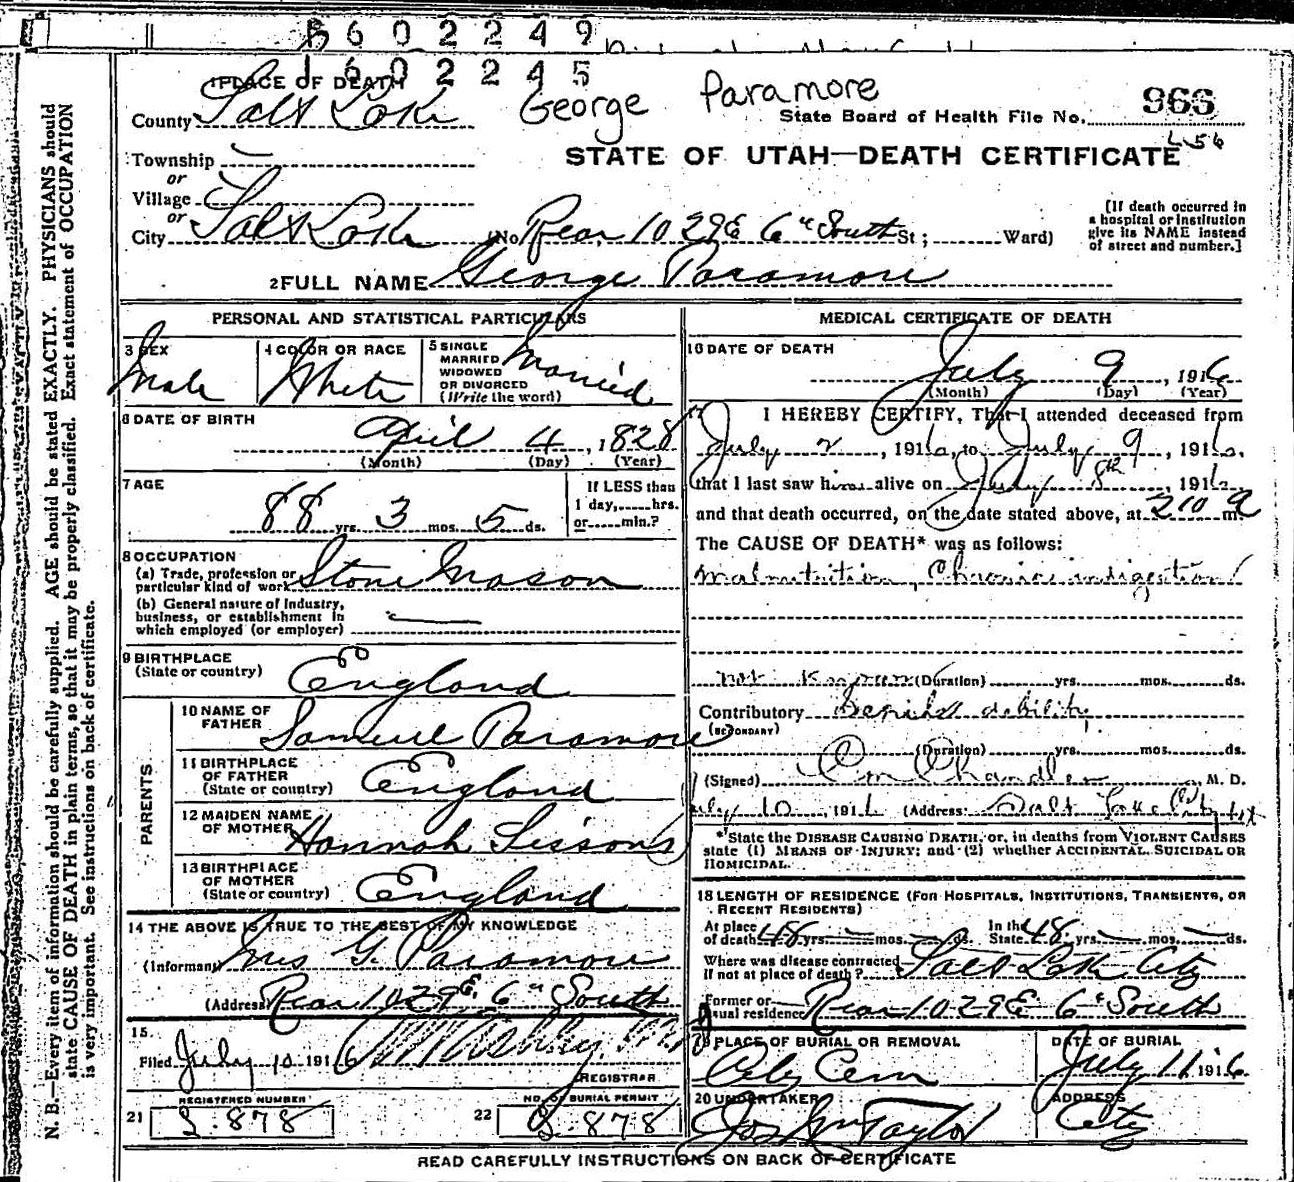 1602249
1602245
1 PLACE OF DEATH
George Paramore
966
County Salt Lake
State Board of Health File No.
L56
Township —
or
STATE OF UTAH—DEATH CERTIFICATE
Village
or
City Salt Lake (No. Rear 1029 E 6" South St; Ward)
[If death occurred in
a hospital or institution
give its NAME instead
of street and number.]
2 FULL NAME George Paramore
PERSONAL AND STATISTICAL PARTICULARS
3 SEX
Male
4 COLOR OR RACE
White
5 SINGLE
MARRIED
WIDOWED
OR DIVORCED
(Write the word)
Married
6 DATE OF BIRTH
April 4, 1828
(Month) (Day) (Year)
7 AGE
88 yrs. 3 mos. 5 ds.
If LESS than
1 day, hrs.
or min.?
8 OCCUPATION
(a) Trade, profession or
particular kind of work Stone Mason
(b) General nature of industry,
business, or establishment in
which employed (or employer)
9 BIRTHPLACE
(State or country)
England
PARENTS
10 NAME OF
FATHER
Samuel Paramore
11 BIRTHPLACE
OF FATHER
(State or country)
England
12 MAIDEN NAME
OF MOTHER
Hannah Sissons
13 BIRTHPLACE
OF MOTHER
(State or country)
England
14 THE ABOVE IS TRUE TO THE BEST OF MY KNOWLEDGE
(Informant) Mrs G. Paramore
(Address) Rear 1029 E. 6" South
15.
Filed July 10 1916
REGISTRAR
REGISTERED NUMBER
21 S.878
NO. OF BURIAL PERMIT
22 S.878
MEDICAL CERTIFICATE OF DEATH
16 DATE OF DEATH
July 9, 1916
(Month) (Day) (Year)
17 I HEREBY CERTIFY, That I attended deceased from
July 2, 1916, to July 9, 1916,
that I last saw him alive on July 8th, 1916,
and that death occurred, on the date stated above, at 210 a m.
The CAUSE OF DEATH* was as follows:
Malnutrition, Chronic indigestion
not known (Duration) yrs. mos. ds.
Contributory Senile debility
(SECONDARY)
(Duration) yrs. mos. ds.
(Signed) Chandler, M. D.
July 10, 1916 (Address) Salt Lake City Ut
*State the DISEASE CAUSING DEATH, or, in deaths from VIOLENT CAUSES
state (1) MEANS OF INJURY; and (2) whether ACCIDENTAL, SUICIDAL OR
HOMICIDAL.
18 LENGTH OF RESIDENCE (FOR HOSPITALS, INSTITUTIONS, TRANSIENTS, OR
RECENT RESIDENTS)
At place
of death 48 yrs. — mos. — ds.
In the
State 48 yrs. — mos. — ds.
Where was disease contracted
if not at place of death? Salt Lake City
Former or
usual residence Rear 1029 E 6" South
19 PLACE OF BURIAL OR REMOVAL
City Cem
DATE OF BURIAL
July 11 1916
20 UNDERTAKER
Jos Wm Taylor
ADDRESS
City
READ CAREFULLY INSTRUCTIONS ON BACK OF CERTIFICATE
N. B.—Every item of information should be carefully supplied. AGE should be stated EXACTLY. PHYSICIANS should
state CAUSE OF DEATH in plain terms, so that it may be properly classified. Exact statement of OCCUPATION
is very important. See instructions on back of certificate.